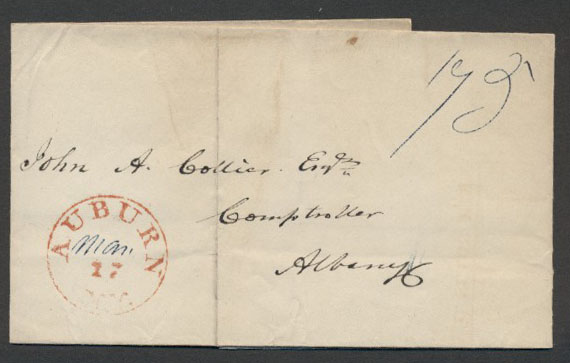 175
John A. Collier Esqr
Comptroller
Albany
AUBURN
Mar
17